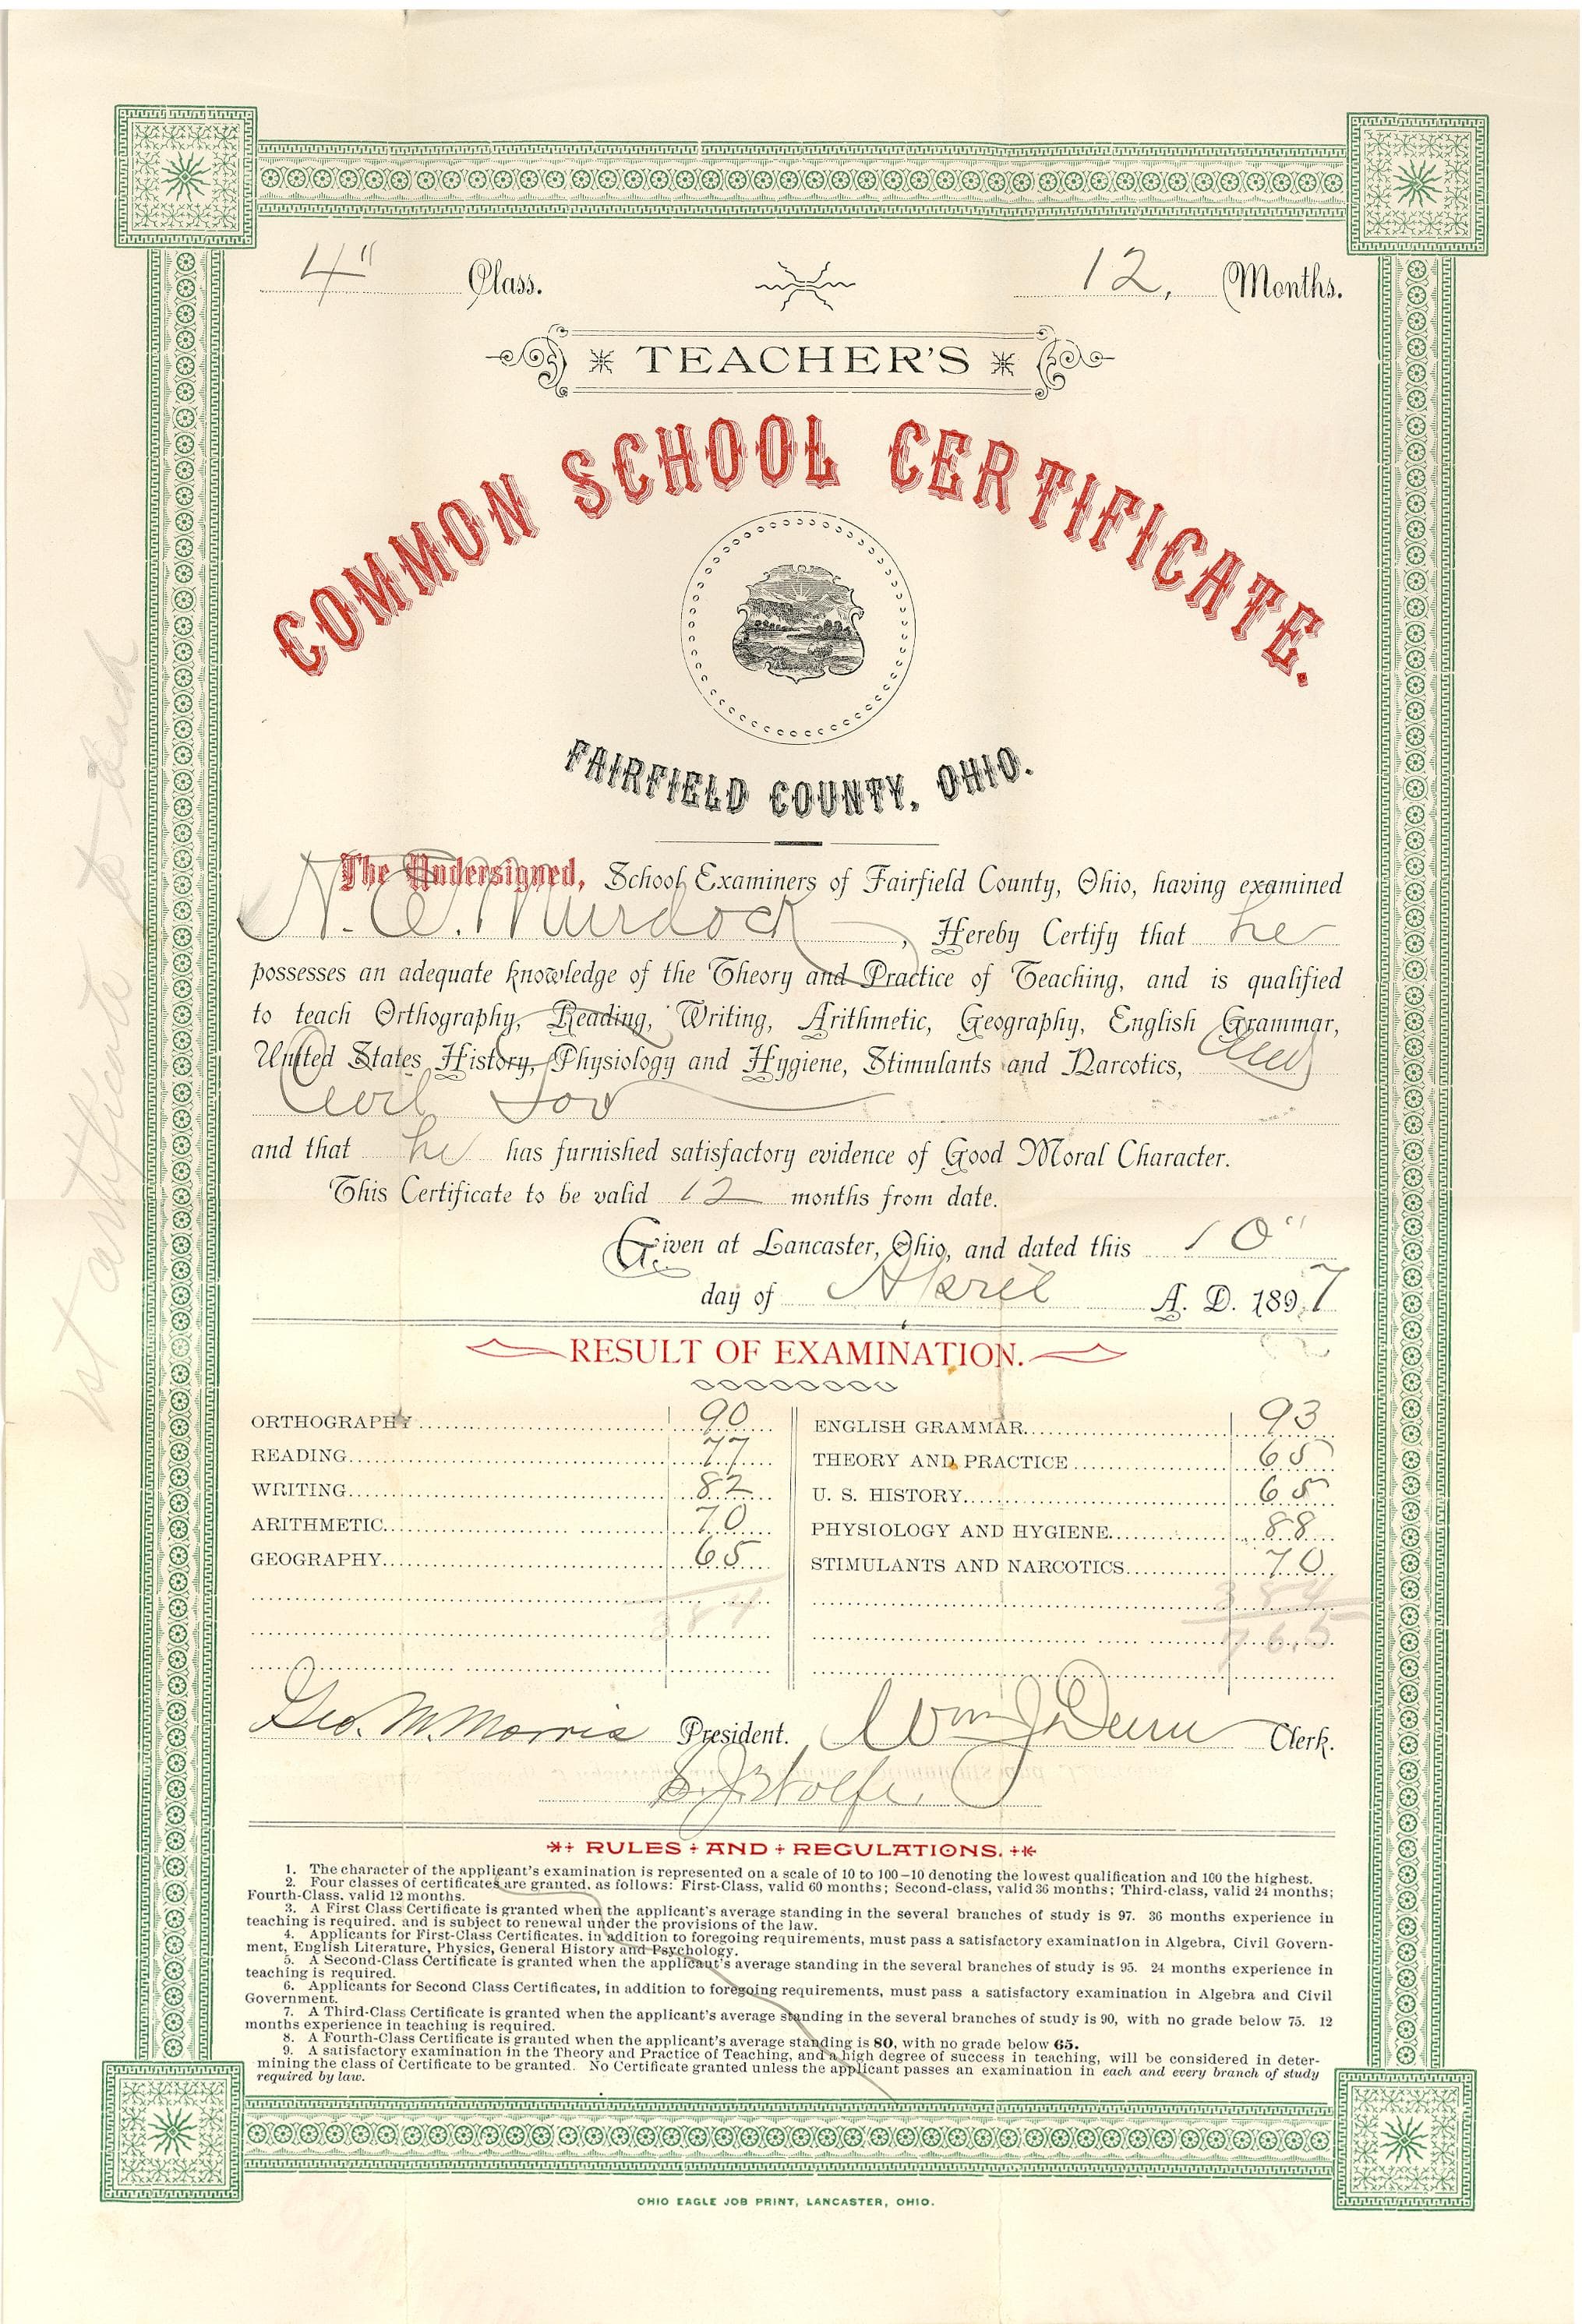 4" Class.
12, Months.
TEACHER'S
COMMON SCHOOL CERTIFICATE.
FAIRFIELD COUNTY, OHIO.
The Undersigned, School Examiners of Fairfield County, Ohio, having examined
N. E. Murdock, Hereby Certify that he
possesses an adequate knowledge of the Theory and Practice of Teaching, and is qualified
to teach Orthography, Reading, Writing, Arithmetic, Geography, English Grammar,
United States History, Physiology and Hygiene, Stimulants and Narcotics, And
Civil Gov
and that he has furnished satisfactory evidence of Good Moral Character.
This Certificate to be valid 12 months from date.
Given at Lancaster, Ohio, and dated this 10"
day of April A. D. 1897
RESULT OF EXAMINATION.
ORTHOGRAPHY 90
READING 77
WRITING 82
ARITHMETIC 70
GEOGRAPHY 65
384
ENGLISH GRAMMAR 93
THEORY AND PRACTICE 65
U. S. HISTORY 65
PHYSIOLOGY AND HYGIENE 88
STIMULANTS AND NARCOTICS 70
384
765
Geo. M. Morris President. Wm J. Dunn Clerk.
S. J. Wolfe.
RULES AND REGULATIONS.
1. The character of the applicant's examination is represented on a scale of 10 to 100—10 denoting the lowest qualification and 100 the highest.
2. Four classes of certificates are granted, as follows: First-Class, valid 60 months; Second-class, valid 36 months; Third-class, valid 24 months;
Fourth-Class, valid 12 months.
3. A First Class Certificate is granted when the applicant's average standing in the several branches of study is 97. 36 months experience in
teaching is required, and is subject to renewal under the provisions of the law.
4. Applicants for First-Class Certificates, in addition to foregoing requirements, must pass a satisfactory examination in Algebra, Civil Govern-
ment, English Literature, Physics, General History and Psychology.
5. A Second-Class Certificate is granted when the applicant's average standing in the several branches of study is 95. 24 months experience in
teaching is required.
6. Applicants for Second Class Certificates, in addition to foregoing requirements, must pass a satisfactory examination in Algebra and Civil
Government.
7. A Third-Class Certificate is granted when the applicant's average standing in the several branches of study is 90, with no grade below 75. 12
months experience in teaching is required.
8. A Fourth-Class Certificate is granted when the applicant's average standing is 80, with no grade below 65.
9. A satisfactory examination in the Theory and Practice of Teaching, and a high degree of success in teaching, will be considered in deter-
mining the class of Certificate to be granted. No Certificate granted unless the applicant passes an examination in each and every branch of study
required by law.
OHIO EAGLE JOB PRINT, LANCASTER, OHIO.
1st certificate to teach